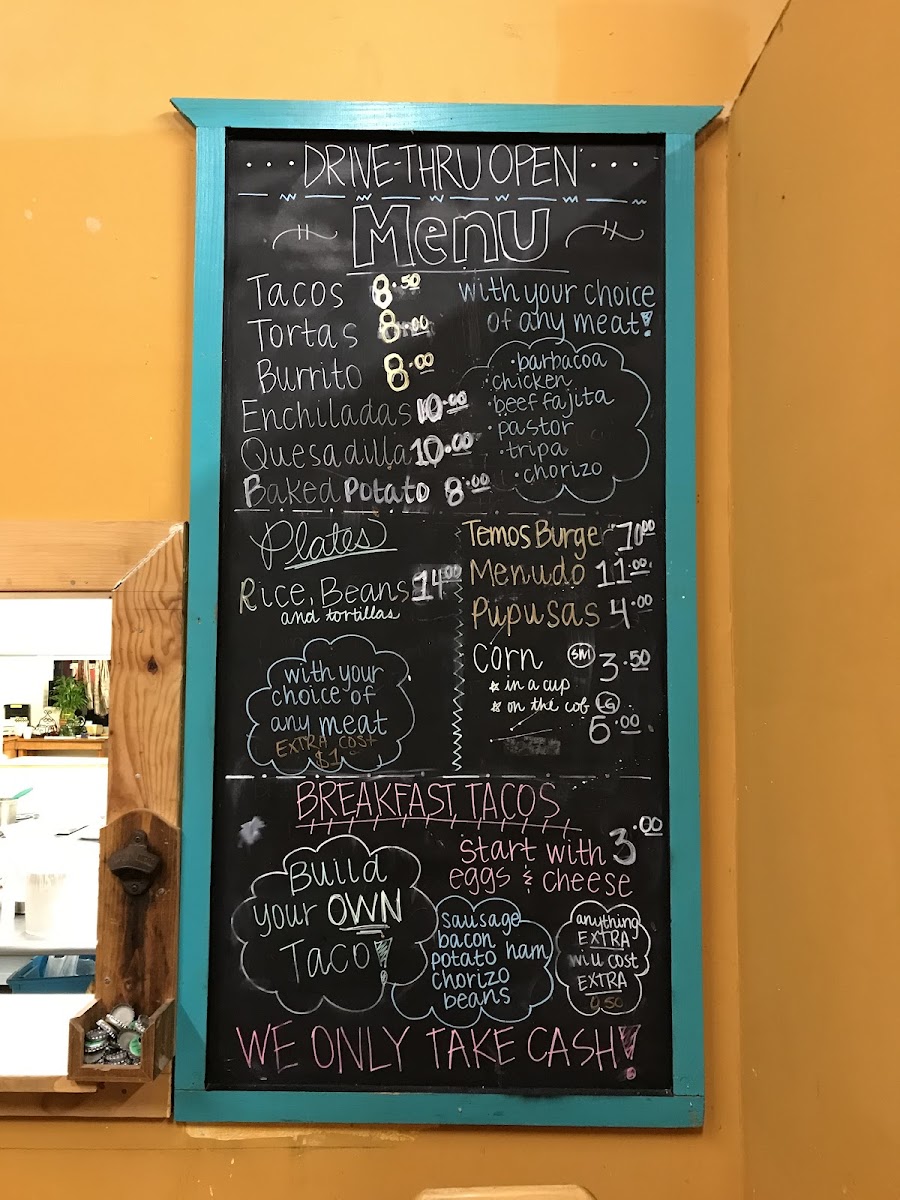 DRIVE-THRU OPEN
Menu
Tacos 8.50
Tortas 8.00
Burrito 8.00
Enchiladas 10.00
Quesadilla 10.00
Baked Potato 8.00
with your choice
of any meat!
• barbacoa
• chicken
• beef fajita
• pastor
• tripa
• chorizo
Plates
Rice, Beans 14.00
and tortillas
with your
choice of
any meat
EXTRA COST
$1
Temos Burger 7.00
Menudo 11.00
Pupusas 4.00
Corn SM 3.50
in a cup
on the cob LG
6.00
BREAKFAST TACOS
start with 3.00
eggs & cheese
Build
your OWN
Taco!
sausage
bacon
potato ham
chorizo
beans
anything
EXTRA
will cost
EXTRA
0.50
WE ONLY TAKE CASH!